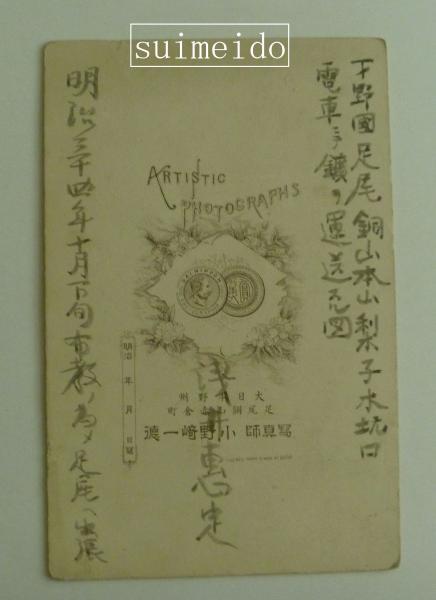 suimeido
下野國足尾銅山本山梨子水坑口
電車ニテ鑛ヲ運送スル図
ARTISTIC
PHOTOGRAPHS
明治 年 月 日寫
大日本野州
足尾銅山赤倉町
寫真師 小野﨑一德
明治三十四年十月下旬布教ノ為メ足尾ヘ出張
浅井惠定